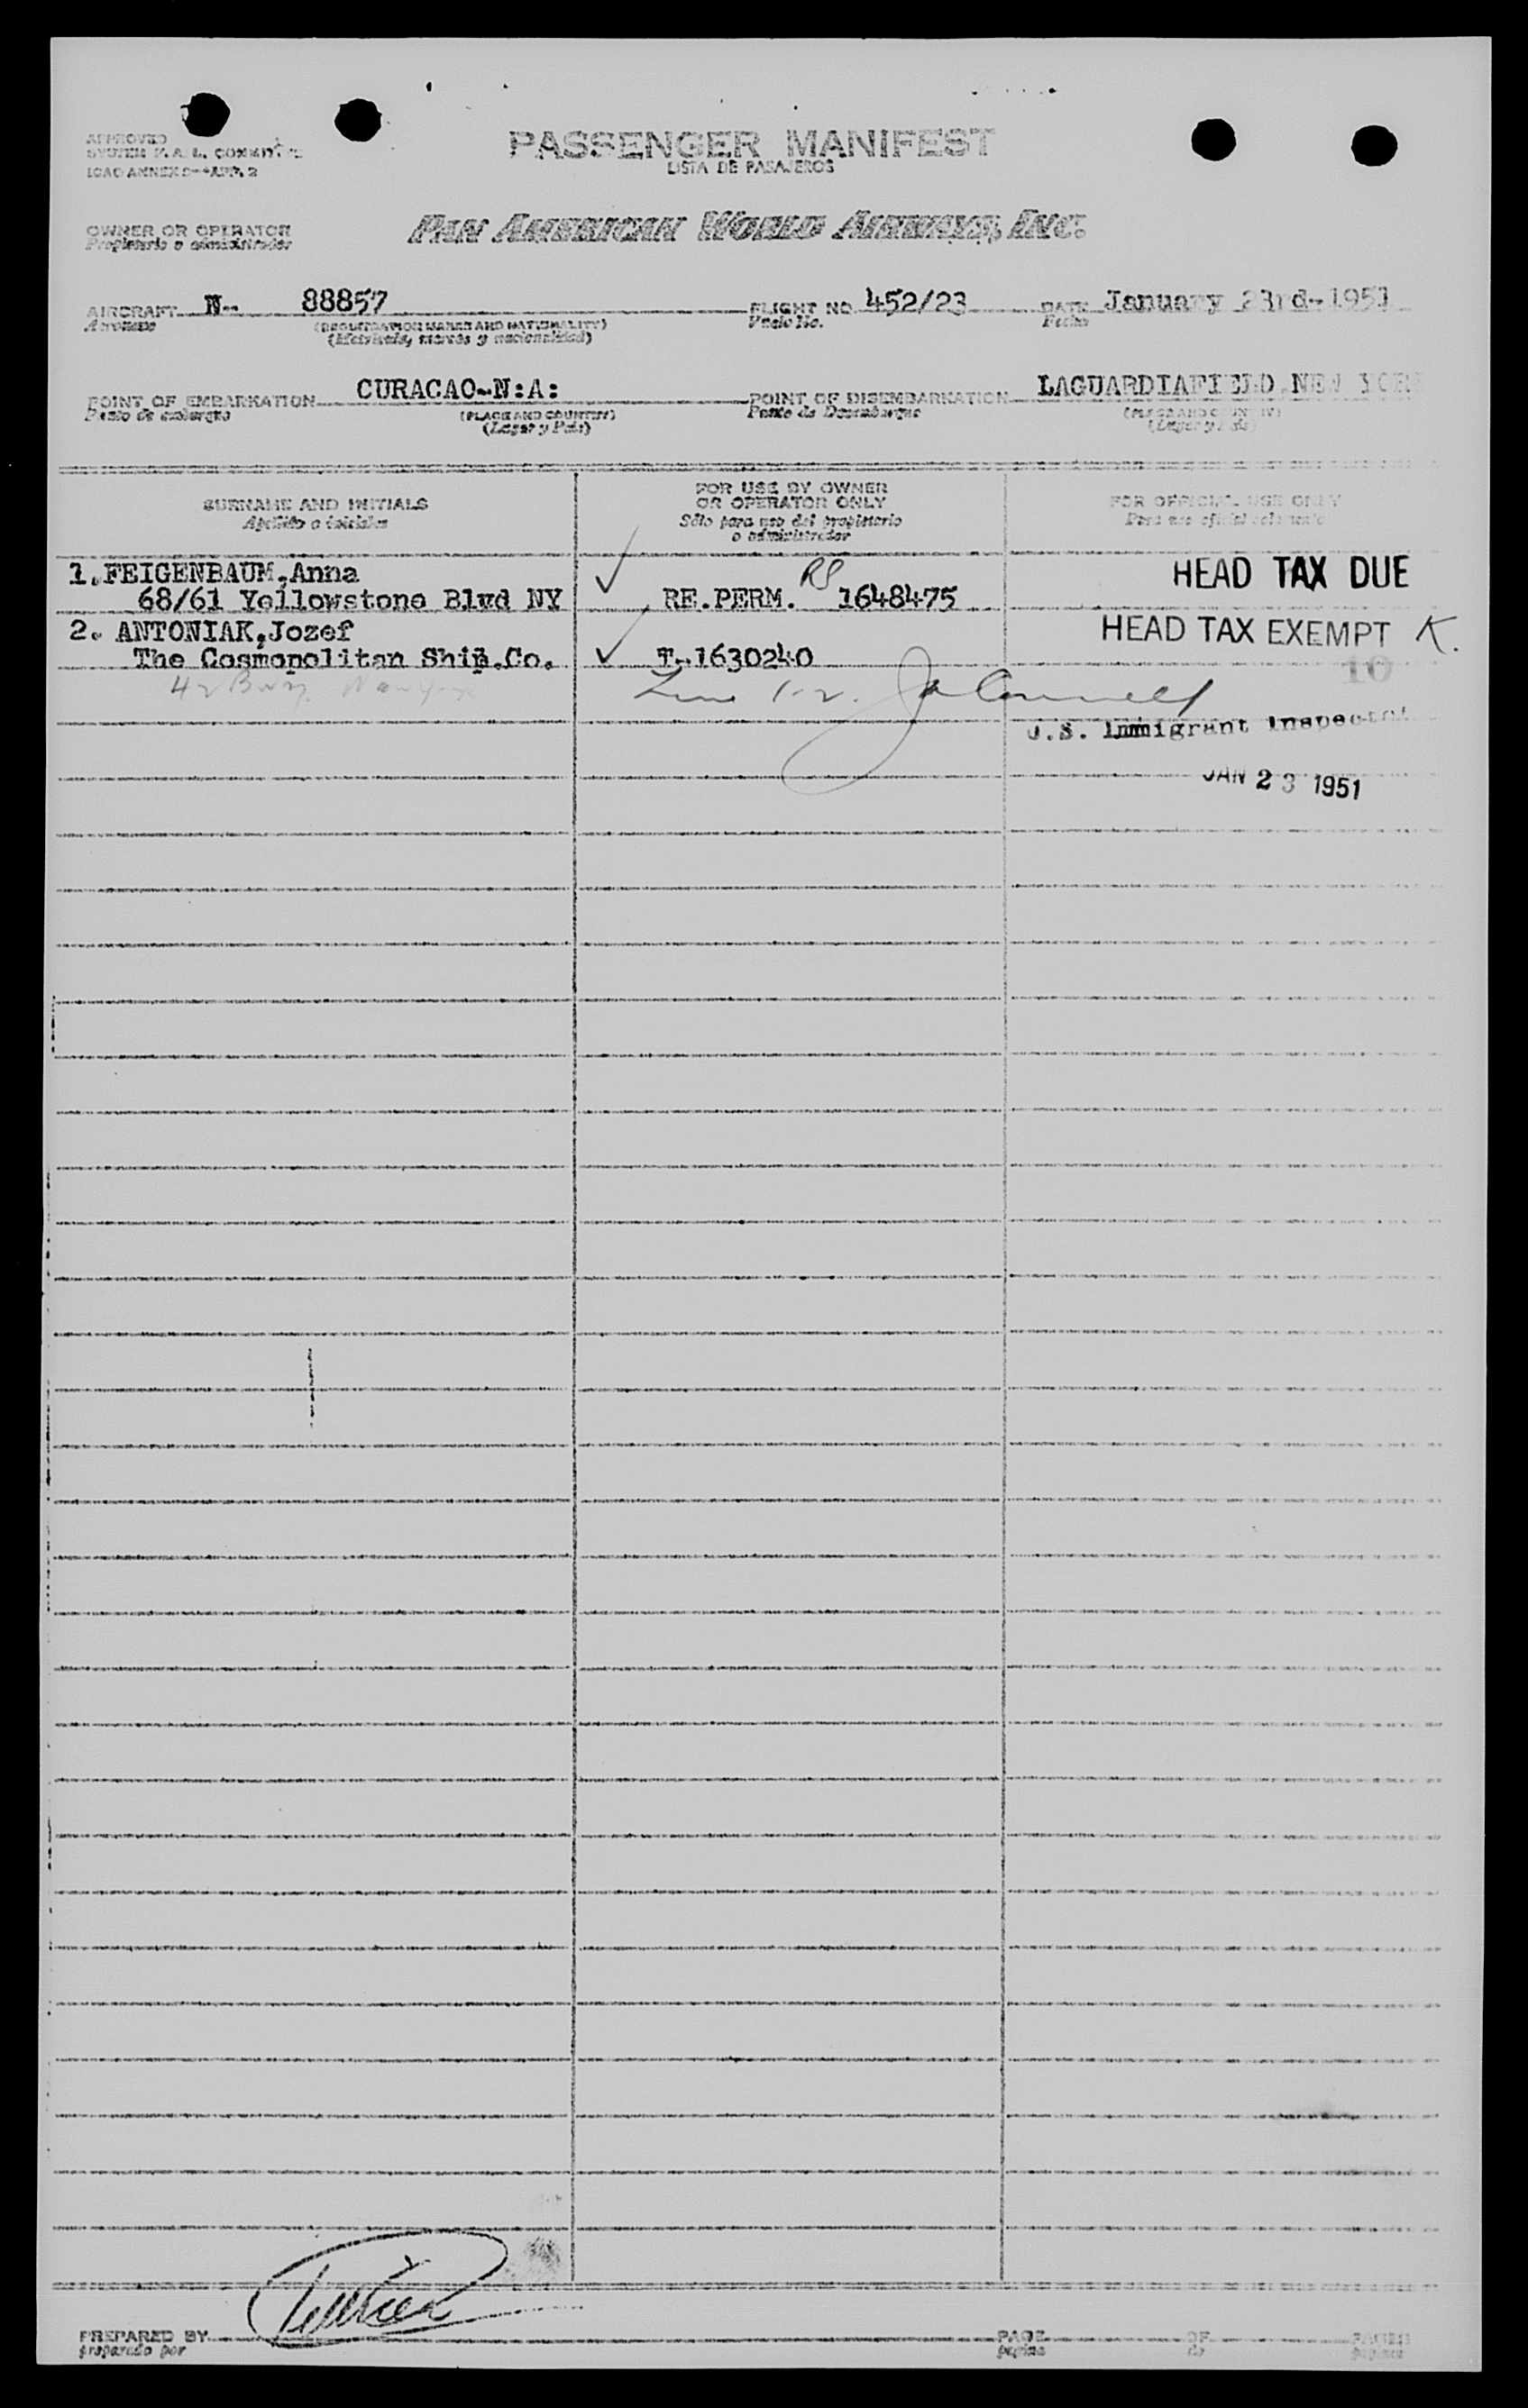 APPROVED
SYSTEM F. A. L. COMMITTEE
ICAO ANNEX 9—APP. 2
PASSENGER MANIFEST
LISTA DE PASAJEROS
OWNER OR OPERATOR
Propietario o administrador
PAN AMERICAN WORLD AIRWAYS, INC.
AIRCRAFT N- 88857 FLIGHT NO. 452/23 DATE January 23rd-1951
Aeronave (REGISTRATION MARKS AND NATIONALITY) Vuelo No. Fecha
(Matrícula, marcas y nacionalidad)
POINT OF EMBARKATION CURACAO-N:A: POINT OF DISEMBARKATION LAGUARDIAFIELD.NEW YORK
Punto de embarque (PLACE AND COUNTRY) Punto de Desembarque (PLACE AND COUNTRY)
(Lugar y País) (Lugar y País)
SURNAME AND INITIALS
Apellido o iniciales
FOR USE BY OWNER
OR OPERATOR ONLY
Sólo para uso del propietario
o administrador
FOR OFFICIAL USE ONLY
Para uso oficial solamente
1.FEIGENBAUM,Anna RP HEAD TAX DUE
68/61 Yellowstone Blvd NY RE.PERM. 1648475
2. ANTONIAK,Jozef HEAD TAX EXEMPT K.
The Cosmopolitan Ship.Co. T-1630240 10
42 Bwy. New York 1-2.
U.S. Immigrant Inspector
JAN 23 1951
PREPARED BY PAGE OF PAGES
preparado por página de páginas